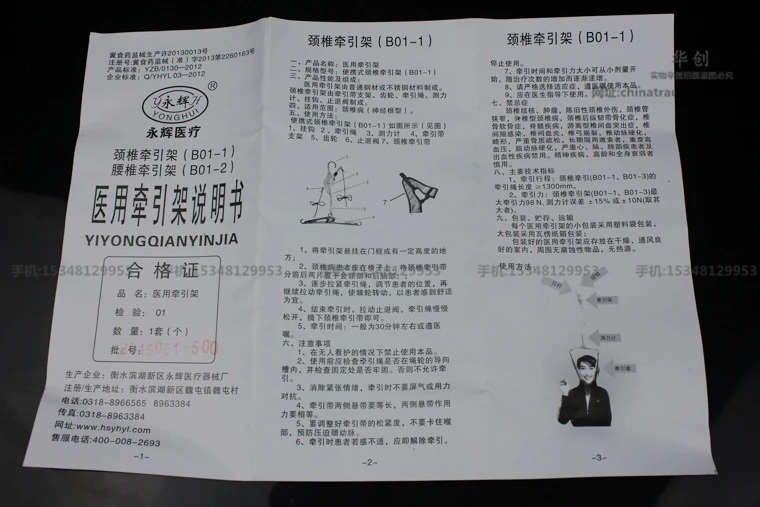 冀食药监械生产许20130013号
注册号:冀食药监械(准)字2013第2260163号
产品标准: YZB/0130—2012
企业标准: Q/YHYL 03—2012
永辉
YONGHUI
永辉医疗
颈椎牵引架(B01-1)
腰椎牵引架(B01-2)
医用牵引架说明书
YIYONGQIANYINJIA
合格证
品名: 医用牵引架
检验: 01
数量: 1套(个)
批号:
生产企业: 衡水滨湖新区永辉医疗器械厂
注册/生产地址: 衡水滨湖新区魏屯镇魏屯村
电话:0318-8966565 8963384
传真:0318-8963384
网址:www.hsyhyl.com
售服电话:400-008-2693
-1-
颈椎牵引架(B01-1)
一、产品名称: 医用牵引架
二、规格型号: 便携式颈椎牵引架(B01-1)
三、产品性能及组成:
医用牵引架由普通钢材或不锈钢材料制成。
颈椎牵引架由牵引带支架、齿轮、牵引绳、测力
计、挂钩、止退阀制成。
四、适用范围: 颈椎病(神经根型)。
五、使用方法:
便携式颈椎牵引架(B01-1)如图所示(见图)
1、挂钩 2、牵引绳 3、测力计 4、牵引带
支架 5、齿轮 6、止退阀 7、颈椎牵引带
7
1、将牵引架悬挂在门框或有一定高度的地
方;
2、颈椎病患者座在椅子上，将颈椎牵引带
分前后两片置于会颌部和后脑部;
3、逐步拉紧牵引绳，调节患者的位置，再
继续拉动牵引绳，使棘轮转动，以患者感到舒适
为宜。
4、结束牵引时，拉动止退阀，牵引绳慢慢
松开，摘下颈椎牵引带即可。
5、牵引时间: 一般为30分钟左右或遵医
嘱。
六、注意事项
1、在无人看护的情况下禁止使用本品。
2、使用前应检查牵引绳是否在绳轮的导向
槽内，并检查固定处是否牢固。否则不允许牵
引。
3、消除紧张情绪，牵引时不要屏气或用力
对抗。
4、牵引带两侧悬带要等长，两侧悬带作用
力要相等。
5、要调整好牵引带的松紧度，不要卡住喉
部，预防压迫颈动脉。
6、牵引时患者若感不适，应即解除牵引，
-2-
颈椎牵引架(B01-1)
停止使用。
7、牵引时间和牵引力大小可从小剂量开
始，随治疗次数的增加而逐渐递增。
8、产品严格选择适应症，遵医嘱使用本品。
9、应在医生指导下使用。
七、禁忌症
颈椎结核，肿瘤，陈旧性颈椎外伤，颈椎管
狭窄，脊椎型颈椎病，颈椎后纵韧带骨化症，椎
骨软骨症，脊髓疾病，游离型椎间盘突出症，椎
间隙感染，椎间盘炎，椎弓崩裂，椎动脉硬化，
畸形，严重骨质疏松，长期服用激素者，重度高
血压，脑动脉硬化，严重心、脑、肺部疾患者及
出血性疾病禁用。精神疾病，高龄和全身衰弱者
慎用。
八、主要技术指标
1、牵引行程: 颈椎牵引(B01-1、B01-3)的
牵引绳长度≥1300mm。
2、牵引力: 颈椎牵引架(B01-1、B01-3)最
大牵引力98N，测力计误差±15%或±10N(取其
大者)。
九、包装、贮存、运输
每个医用牵引架的小包装采用塑料袋包装，
大包装采用瓦楞纸箱包装;
包装好的医用牵引架应存放在干燥，通风良
好的室内，周围无腐蚀性物品，无热源。
使用方法:
牵引架
测力计
牵引套
-3-
手机:15348129953
手机:15348129953
手机:15348129953
华创
网址:chinatrau